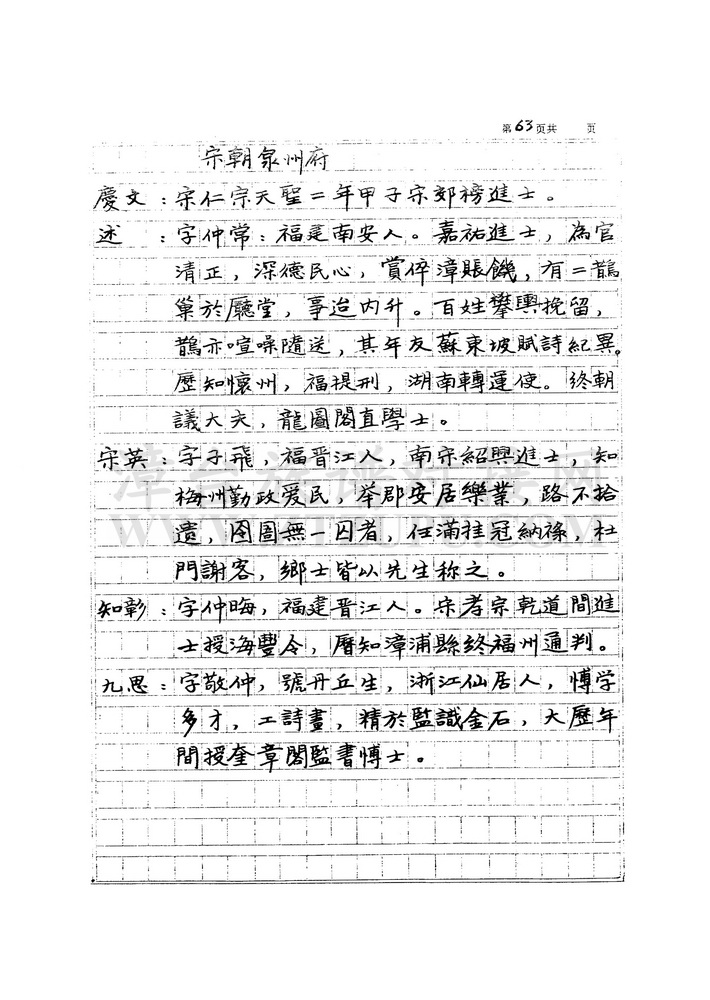 第63页共 页
宋朝泉州府
慶文：宋仁宗天聖二年甲子宋郊榜進士。
述：字仲常：福建南安人。嘉祐進士，為官
清正，深德民心，賞倅漳賬饑，有二鵲
巢於廳堂，事迨内升。百姓攀輿挽留，
鵲亦喧噪隨送，其年友蘇東坡賦詩紀異。
歷知懷州，福提刑，湖南轉運使。終朝
議大夫，龍圖閣直學士。
宋英：字子飛，福晋江人，南宋紹興進士，知
梅州勤政爱民，举郡安居樂業，路不拾
遺，囹圄無一囚者，任滿挂冠納祿，杜
門謝客，鄉士皆以先生称之。
知彰：字仲晦，福建晋江人。宋孝宗乾道間進
士授海豐令，曆知漳浦縣終福州通判。
九思：字敬仲，號丹丘生，浙江仙居人，愽学
多才，工詩畫，精於監識金石，大歷年
間授奎章閣監書愽士。